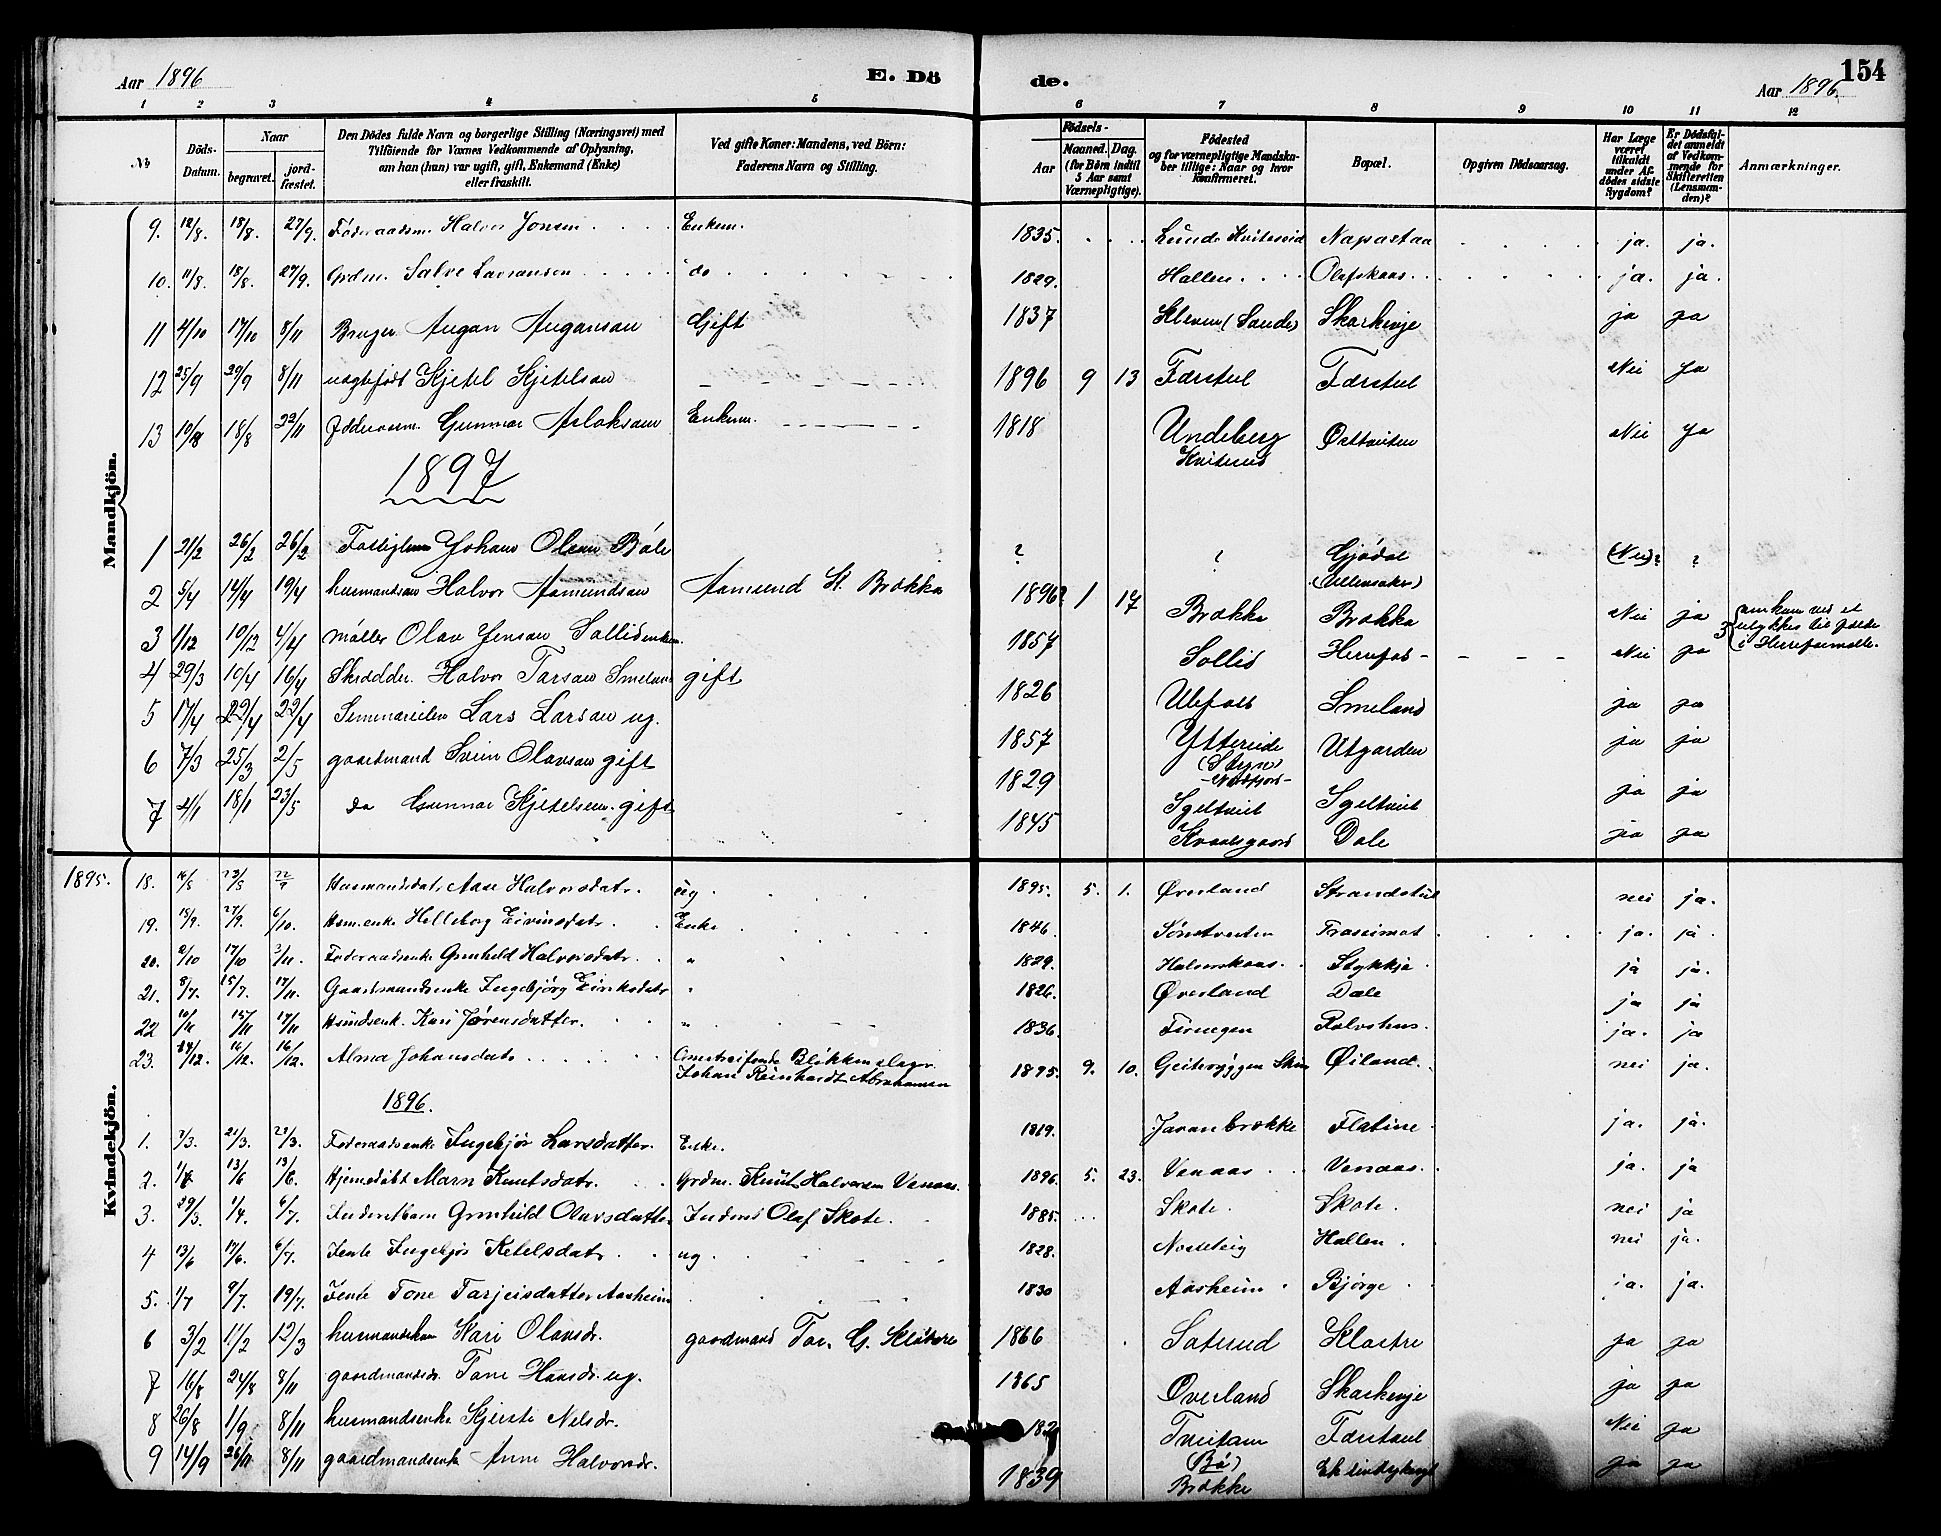 Aar 1896
E. Dö
de.
Aar 1896.
154
1 2 3 4 5 6 7 8 9 10 11 12
No
Döds-Datum.
Naar
begravet.
jord-fæstet.
Den Dödes fulde Navn og borgerlige Stilling (Næringsvei) med
Tilföiende for Voxnes Vedkommende af Oplysning,
om han (hun) var ugift, gift, Enkemand (Enke)
eller fraskilt.
Ved gifte Koner: Mandens, ved Börn:
Faderens Navn og Stilling.
Födsels-
Aar
Maaned. Dag.
(for Börn indtil
5 Aar samt
Værnepligtige).
Födested
og for værnepligtige Mandska-
ber tillige: Naar og hvor
konfirmeret.
Bopæl.
Opgiven Dödsaarsag.
Har Læge
været
tilkaldt
under Af-
dödes sidste
Sygdom?
Er Dödsfal-
det anmeldt
af Vedkom-
mende for
Skifteretten
(Lensman-
den)?
Anmærkninger.
Mandkjön.
9. 12/8. 18/8. 27/9. Föderaadsm. Halvor Jonsen Enkem. 1835. Lunde Kviteseid Napastaa ja. ja.
10. 11/8 18/8. 27/9. Grdm. Salve Lavransen do 1829. Hallen Olafskaas ja. ja.
11 4/10 17/10 8/11 Bruger Augon Augonsøn Gift 1837 Kleven (Sande) Skarkenje ja ja
12 25/9 29/9 8/11 uægtefödt Kjetel Kjetelsøn 1896 9 13 Førstul Førstul Nei Ja
13 10/8 18/8 22/11 Gunnar Aslaksøn Enkem. 1818 Undeberg Kviteseid Nei Ja
1897
1 21/2 26/2 26/2 Fattiglem Johans Olsen Böle ? ? Gjödal (Ullensaker) (Nei)? ?
2 5/4 14/4 19/4 husmandssøn Halvor Aamundsøn Aamund St. Brokka 1896? 1 17 Brokka Brokka Nei ja
3 1/12 10/12 4/4 Møller Olav Jensøn Sollid enkem. 1857 Sollid Nei ja
omkom ved et
ulykkestilfælde
4 29/3 10/4 16/4 Skrædder. Halvor Tarsøn Smeland gift 1826 Ulefoss Smeland ja ja
5 17/4 22/4 22/4 Lars Larsøn ug. 1857 Ytreeide (Stryn) -Nordfjord- Utgarden ja ja
6 7/3 25/3 2/5 gaardmand Svein Olavsøn gift 1829 Sgeltveit Sgeltveit ja ja
7 4/1 18/1 23/5 do Gunnar Kjetelsen gift 1845 Kvaalsgaard Dale ja ja
Kvindekjön.
1895. 18. 14/5 23/5 22/9 Husmandsdatr. Aase Halvorsdatr. ug 1895. 5. 1. Øverland Strandstul nei ja.
19. 18/9. 27/9. 6/10. Husm.enke Helleborg Eivinsdatr. Enke 1846. Sønstveiten ja. ja.
20. 2/10 17/10 3/11. Föderaadsenke Gunhild Halvorsdatr. " 1829. Halvorskaas. Stykkje ja ja.
21. 8/7. 15/7. 17/11. Gaardmandsenke Ingebjörg Eiriksdatr " 1826. Øverland Dale ja ja
22 10/11 15/11 17/11 Kari Jørensdatter. " 1836. Rolvshus. ja. ja
23. 14/12. 16/12. 16/12. Alma Johansdatr Omstreifende Blikkenslager
Johan Reinhardt Abrahamsen 1895. 9. 10. Geiteryggen Øiland. nei ja.
1896.
1. 7/3. 21/3. 22/3. Föderaadsenke Ingebjør Larsdatter. Enke. 1819. Flatine. ja. ja.
2. 13/6 13/6. Hjemedöbt Marn Knutsdatr. Grdm. Knut Halvorsen Venaas. 1896. 5. 23. Venaas Venaas. ja. ja
3. 29/3. 1/4. 6/7. Gunhild Olavsdatter Inderst Olaf Skote. 1885. Skote. Skote. nei ja
4 13/6 17/6. 6/7. Jente Ingebjør Ketelsdatr. ug 1828. Hallen. nei ja.
5. 1/7 9/7. 19/7. Jente Tone Tarjeisdatter Aasheim 1830 Aasheim Bjørge ja. ja.
6 3/2 11/2 12/3 Kari Olavsdr. gaardmand Tor. G. 1866 Klostre ja ja
7 16/8 24/8 8/11 gaardmandsdr. Tone Hansdr. ug. 1865 Øverland Skarkenje ja ja
8 26/8 1/9 8/11 husmandsenke Kjersti Nelsdr. 182 Tveitam (Bø) Førstul Nei ja
9 14/9 26/11 8/11 gaardmandsenke Anne Halvorsdr. 1839 Brokke ja ja